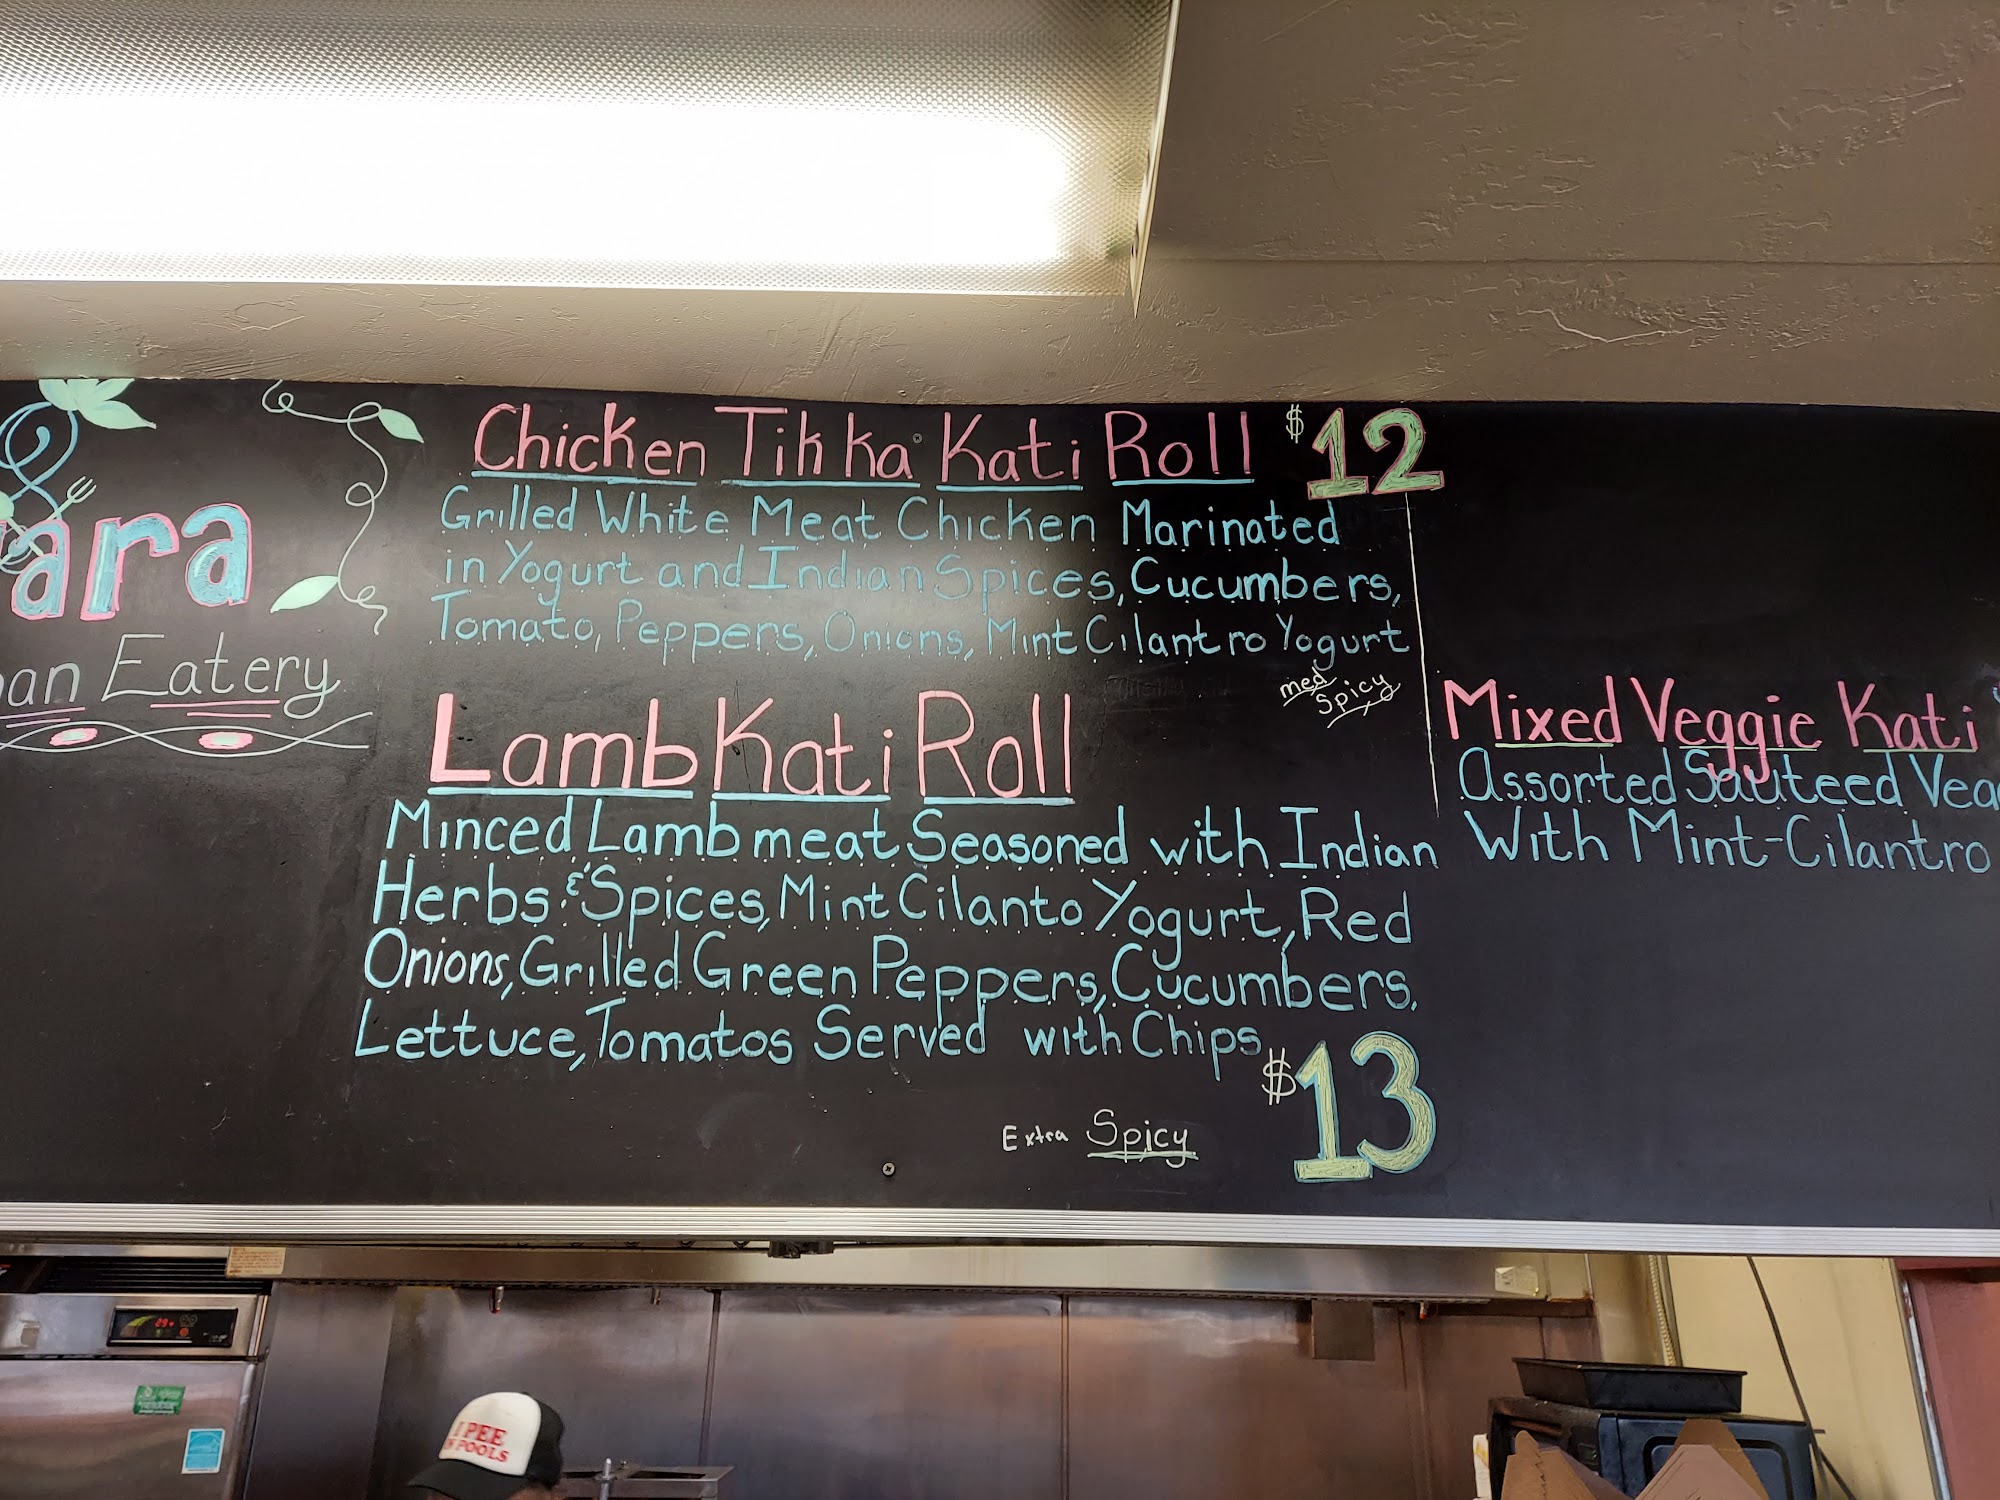 Chicken Tikka Kati Roll $12
Grilled White Meat Chicken Marinated
in Yogurt and Indian Spices, Cucumbers,
Tomato, Peppers, Onions, Mint Cilantro Yogurt
med
Spicy
Eatery
Lamb Kati Roll
Minced Lamb meat Seasoned with Indian
Herbs & Spices, Mint Cilanto Yogurt, Red
Onions, Grilled Green Peppers, Cucumbers,
Lettuce, Tomatos Served with Chips
$13
Extra Spicy
Mixed Veggie Kati
Assorted Sauteed
With Mint-Cilantro
I PEE
IN POOLS